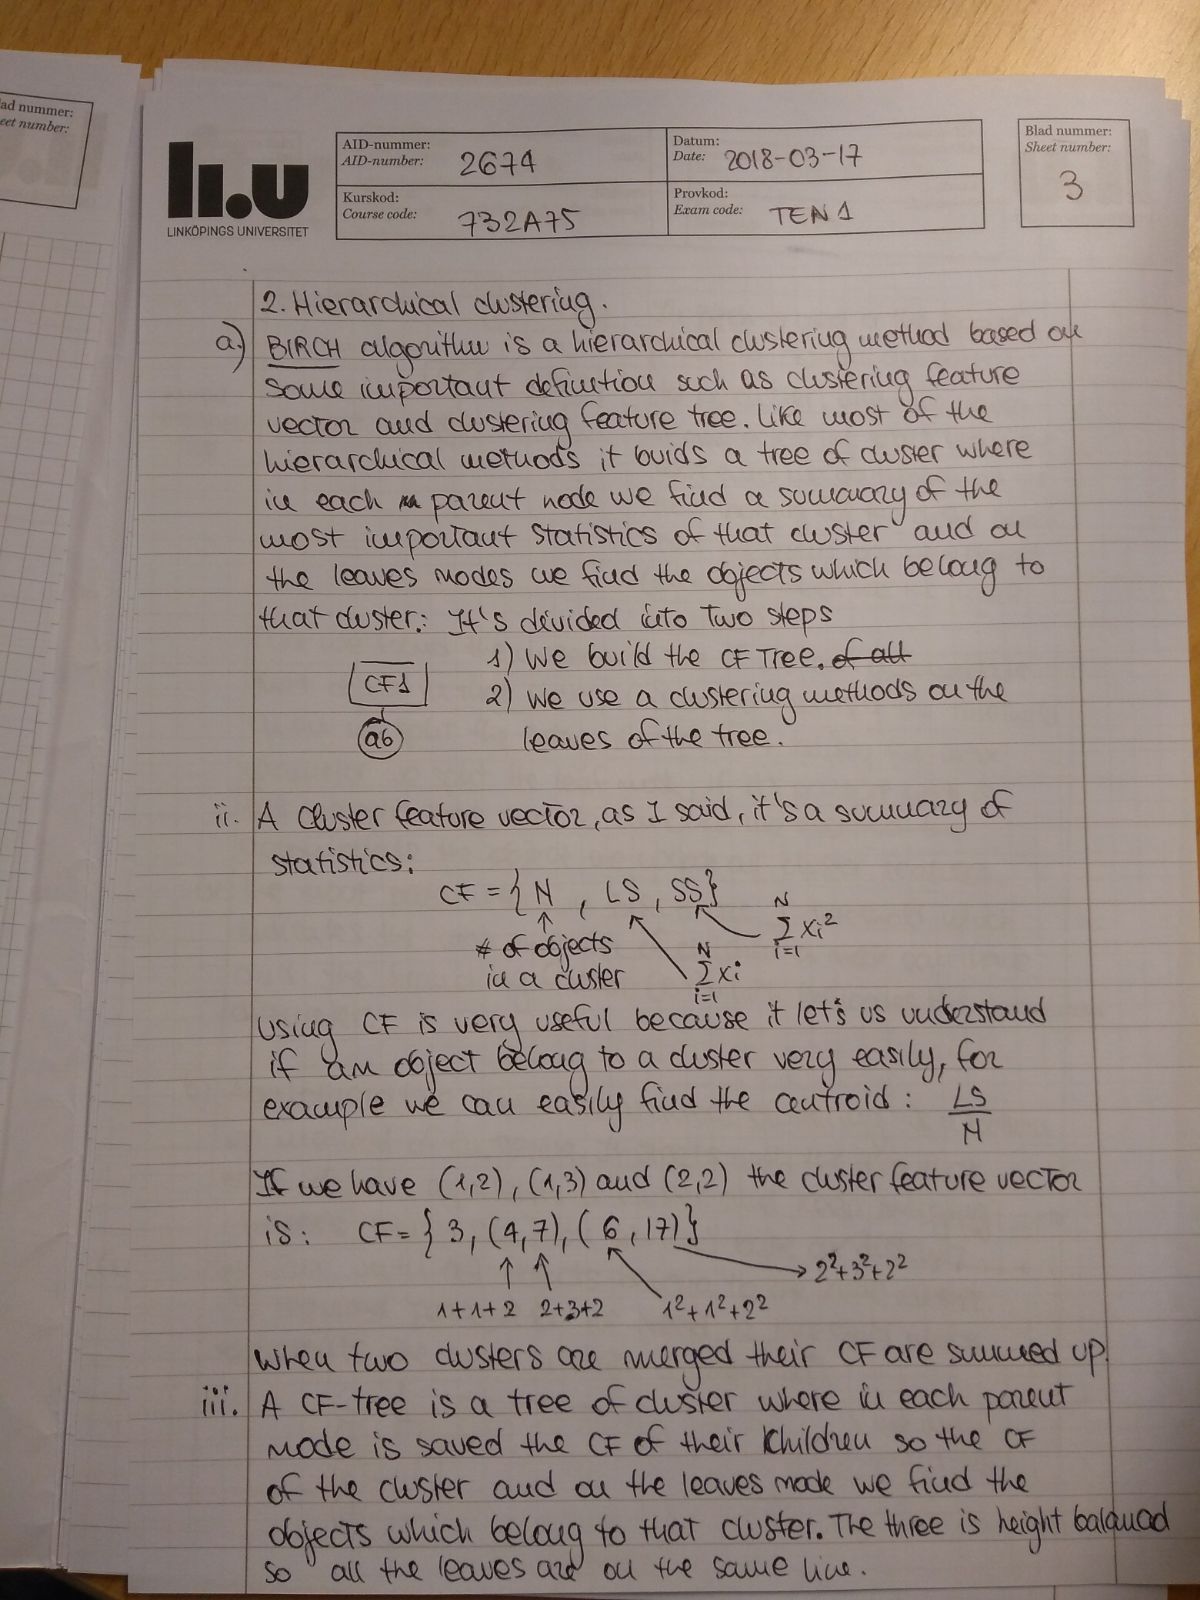 lad nummer:
eet number:
li.u
LINKÖPINGS UNIVERSITET
AID-nummer:
AID-number: 2674
Datum:
Date: 2018-03-17
Kurskod:
Course code: 732A75
Provkod:
Exam code: TEN1
Blad nummer:
Sheet number:
3
2. Hierarchical clustering.
a) BIRCH algorithm is a hierarchical clustering method based on
some important definition such as clustering feature
vector and clustering feature tree. Like most of the
hierarchical methods it buids a tree of cluster where
in each parent node we find a summary of the
most important statistics of that cluster and on
the leaves nodes we find the objects which belong to
that cluster: It's divided into two steps
1) We build the CF Tree. of all
2) We use a clustering methods on the
leaves of the tree.
CF1
ab
ii. A Cluster feature vector, as I said, it's a summary of
statistics:
CF = { N , LS , SS}
# of objects
in a cluster
N
Σ xi
i=1
N
Σ xi²
i=1
Using CF is very useful because it let's us understand
if an object belong to a cluster very easily, for
example we can easily find the centroid: LS
N
If we have (1,2), (1,3) and (2,2) the cluster feature vector
is: CF = { 3, (4,7), (6,17)}
2²+3²+2²
1+1+2 2+3+2 1²+1²+2²
When two clusters are merged their CF are summed up.
iii. A CF-tree is a tree of cluster where in each parent
node is saved the CF of their children so the CF
of the cluster and on the leaves node we find the
objects which belong to that cluster. The three is height
so all the leaves are on the same line.